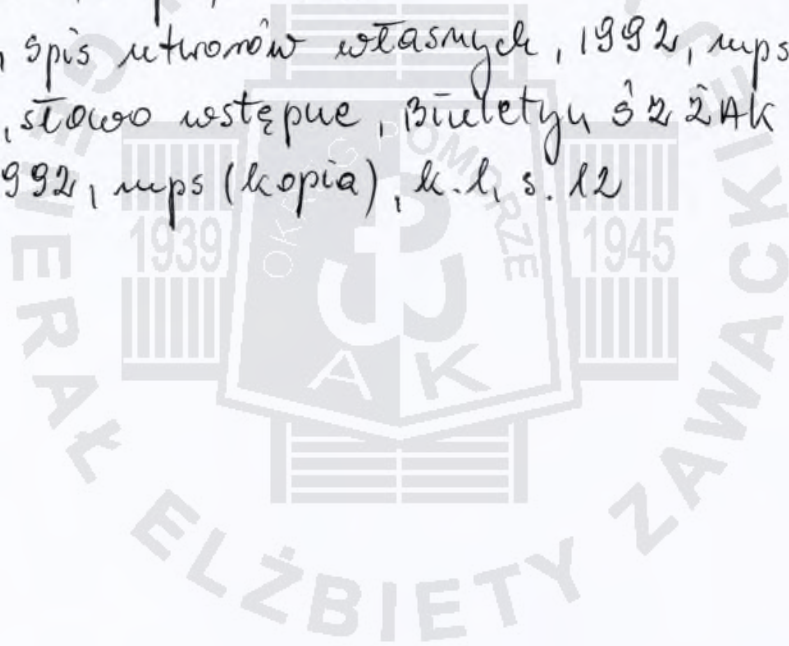 , spis utworów własnych, 1992, mps
, słowo wstępne, Biuletyn ŚZŻAK
992, mps (kopia), k. 1, s. 12
OKRĘG POMORZE
1939
1945
AK
GENERAŁ ELŻBIETY ZAWACKIE